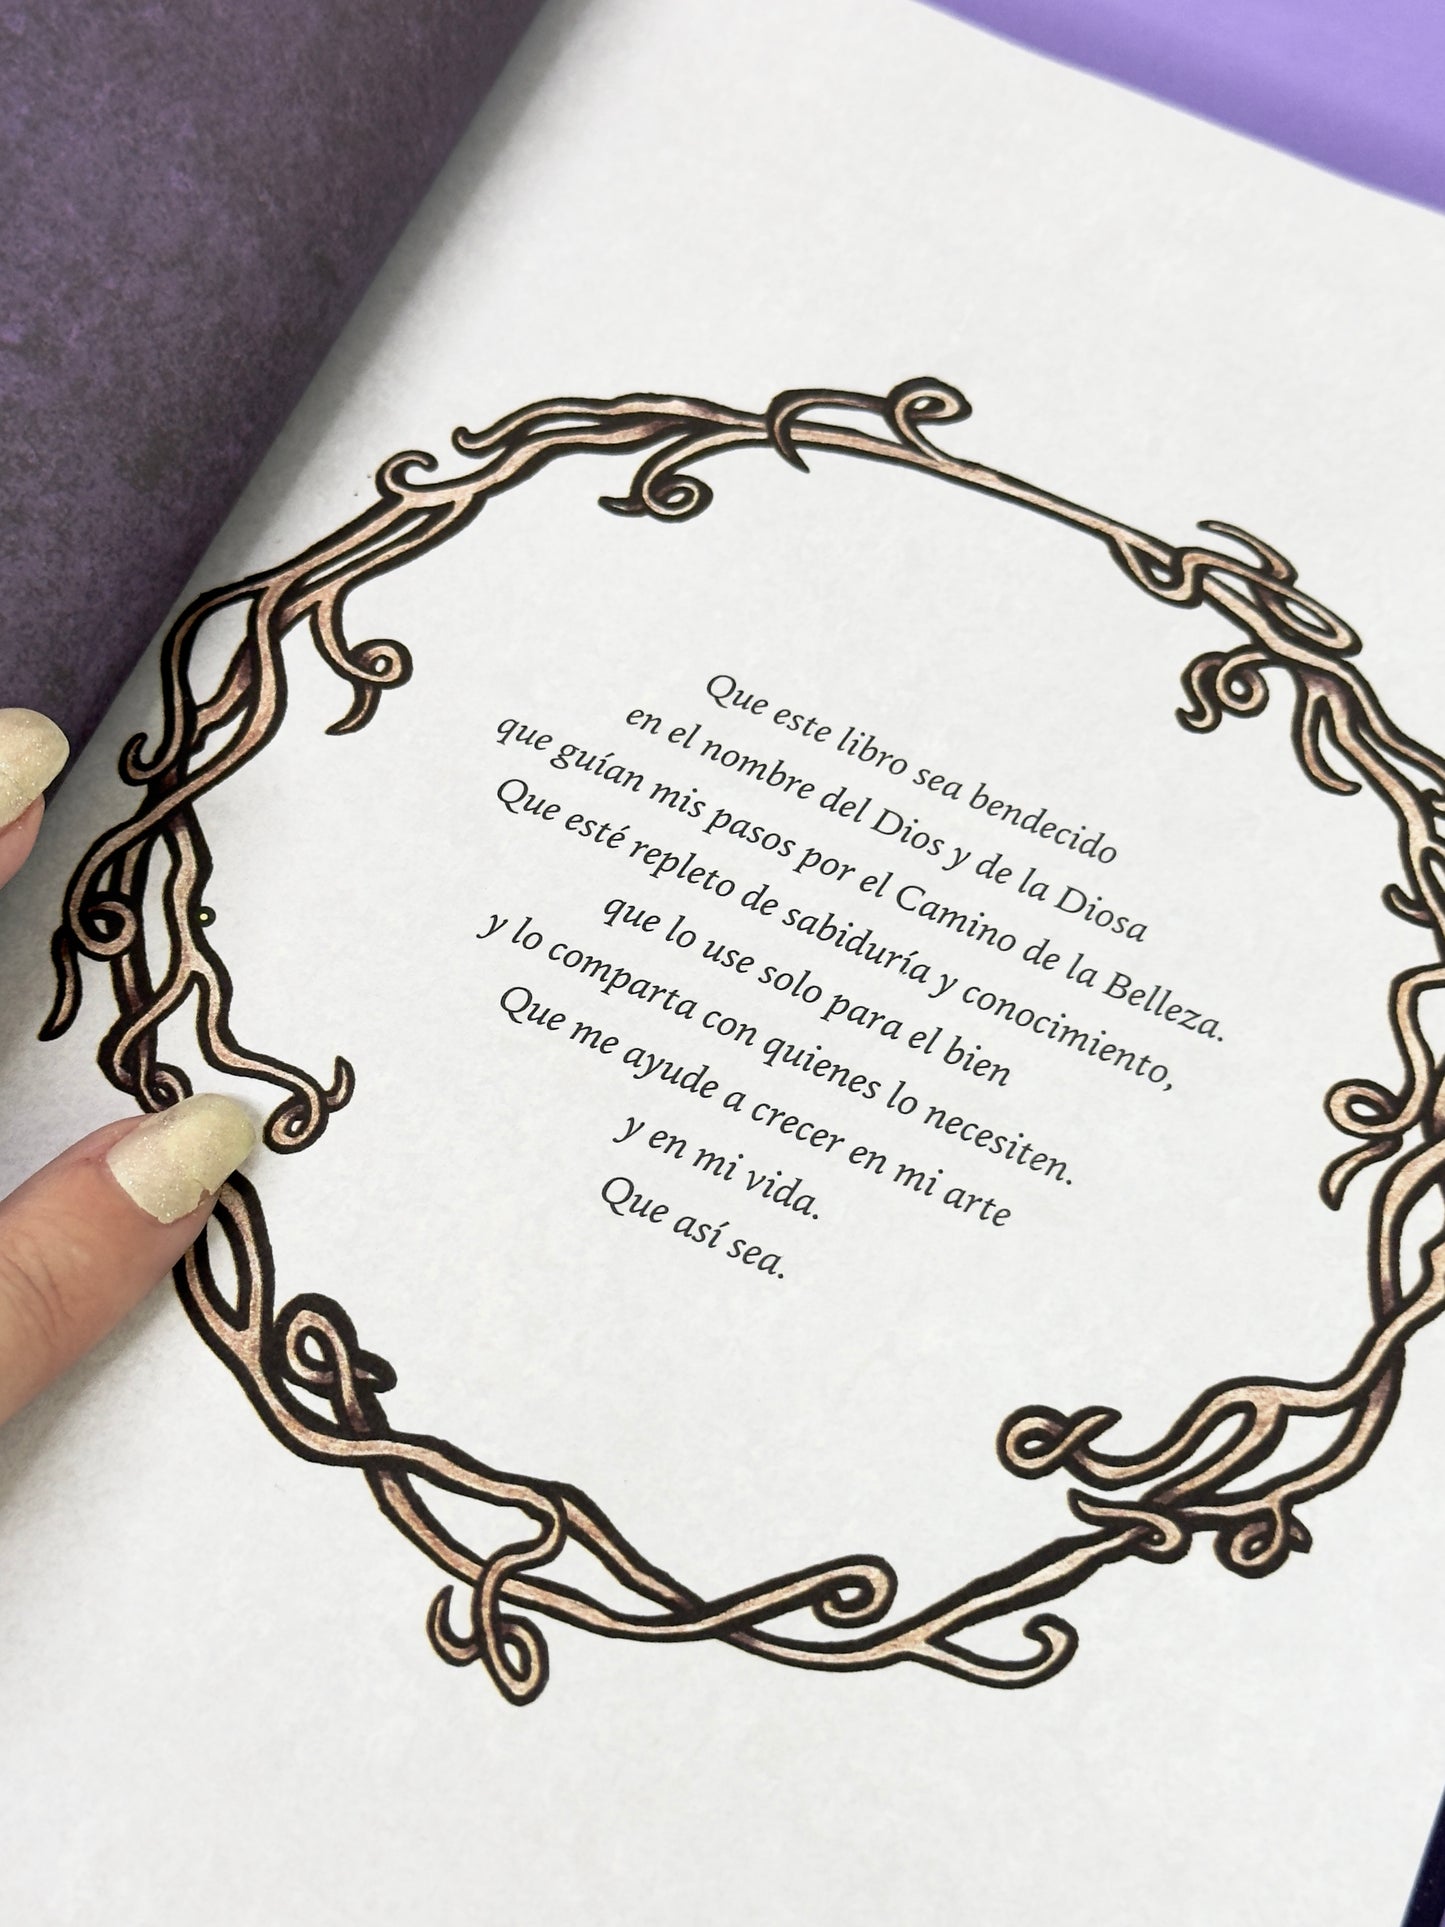 Que este libro sea bendecido
en el nombre del Dios y de la Diosa
que guían mis pasos por el Camino de la Belleza.
Que esté repleto de sabiduría y conocimiento,
que lo use solo para el bien
y lo comparta con quienes lo necesiten.
Que me ayude a crecer en mi arte
y en mi vida.
Que así sea.